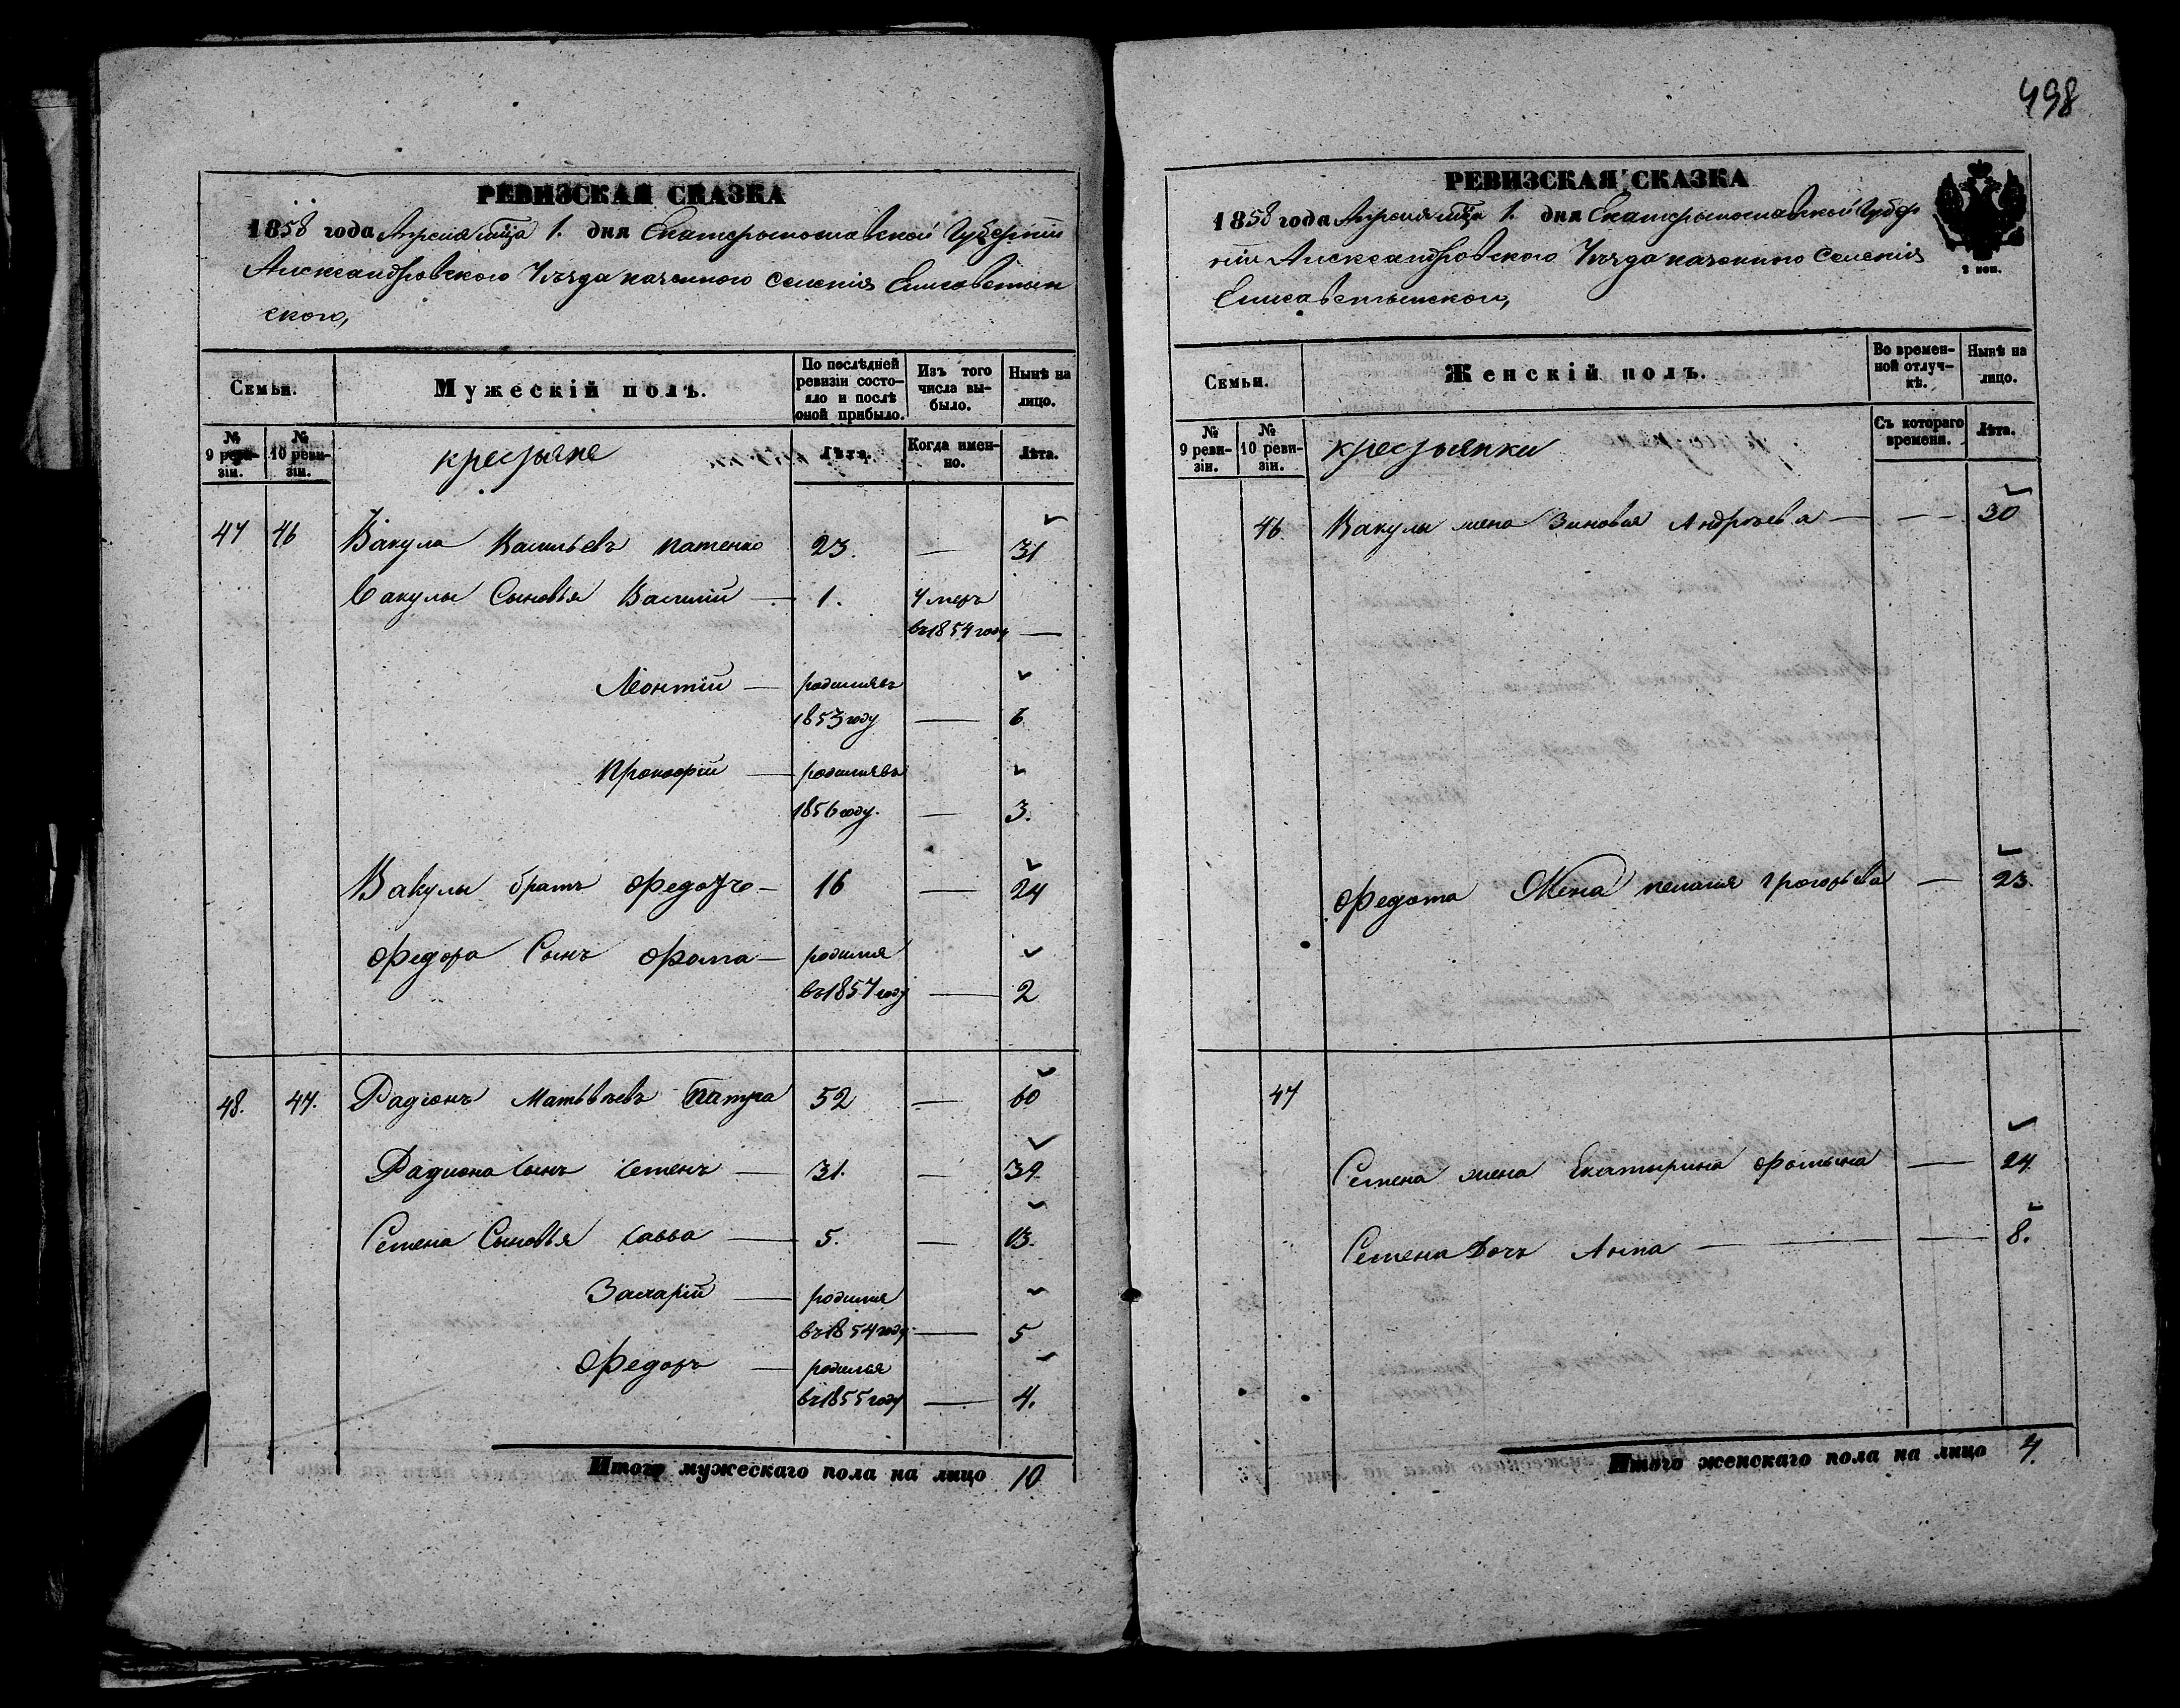 РЕВИЗСКАЯ СКАЗКА
1858 года Апреля мца 1. дня Екатеринославской Губернии
Александровского Уѣзда казенного селенія Елисаветин
ского,
Семьи.
Мужескій полъ.
По послѣдней ревизіи состояло и послѣ оной прибыло.
Изъ того числа выбыло.
Нынѣ на лицо.
№ 9 ревизіи.
№ 10 ревизіи.
крестьяне
Лѣта.
Когда именно.
Лѣта.
47 46 Вакула Васильевъ Патенко 23. — 31
Вакулы Сыновья Василій — 1. Умеръ
въ 1854 году —
Леонтій — родился въ
1853 году — 6
Прокофій — родился въ
1856 году. — 3.
Вакулы братъ Федотъ — 16 — 24
Федора Сынъ Фома — родился
въ 1857 году — 2
48. 47. Радіонъ Матвѣевъ Патра 52 — 60
Радиона сынъ Семенъ — 31. — 39
Семена Сыновья Савва — 5. — 13.
Захарій — родился
въ 1854 году — 5
Федоръ — родился
въ 1855 году — 4.
Итого мужескаго пола на лицо 10
498
РЕВИЗСКАЯ СКАЗКА
1858 года Апреля мца 1. дня Екатеринославской Губер
ніи Александровского Уѣзда казенного селенія
Елисаветинского,
2 коп.
Семьи.
Женскій полъ.
Во временной отлучкѣ.
Нынѣ на лицо.
№ 9 ревизіи.
№ 10 ревизіи.
крестьянки
Съ котораго времени.
Лѣта.
46 Вакулы жена Зиновия Андреева — — 30
Федота Жена пелагия григорьева — 23.
47
Семена жена Екатирина фомина — 24
Семена Дочь Анна — — 8.
Итого женскаго пола на лицо 4.